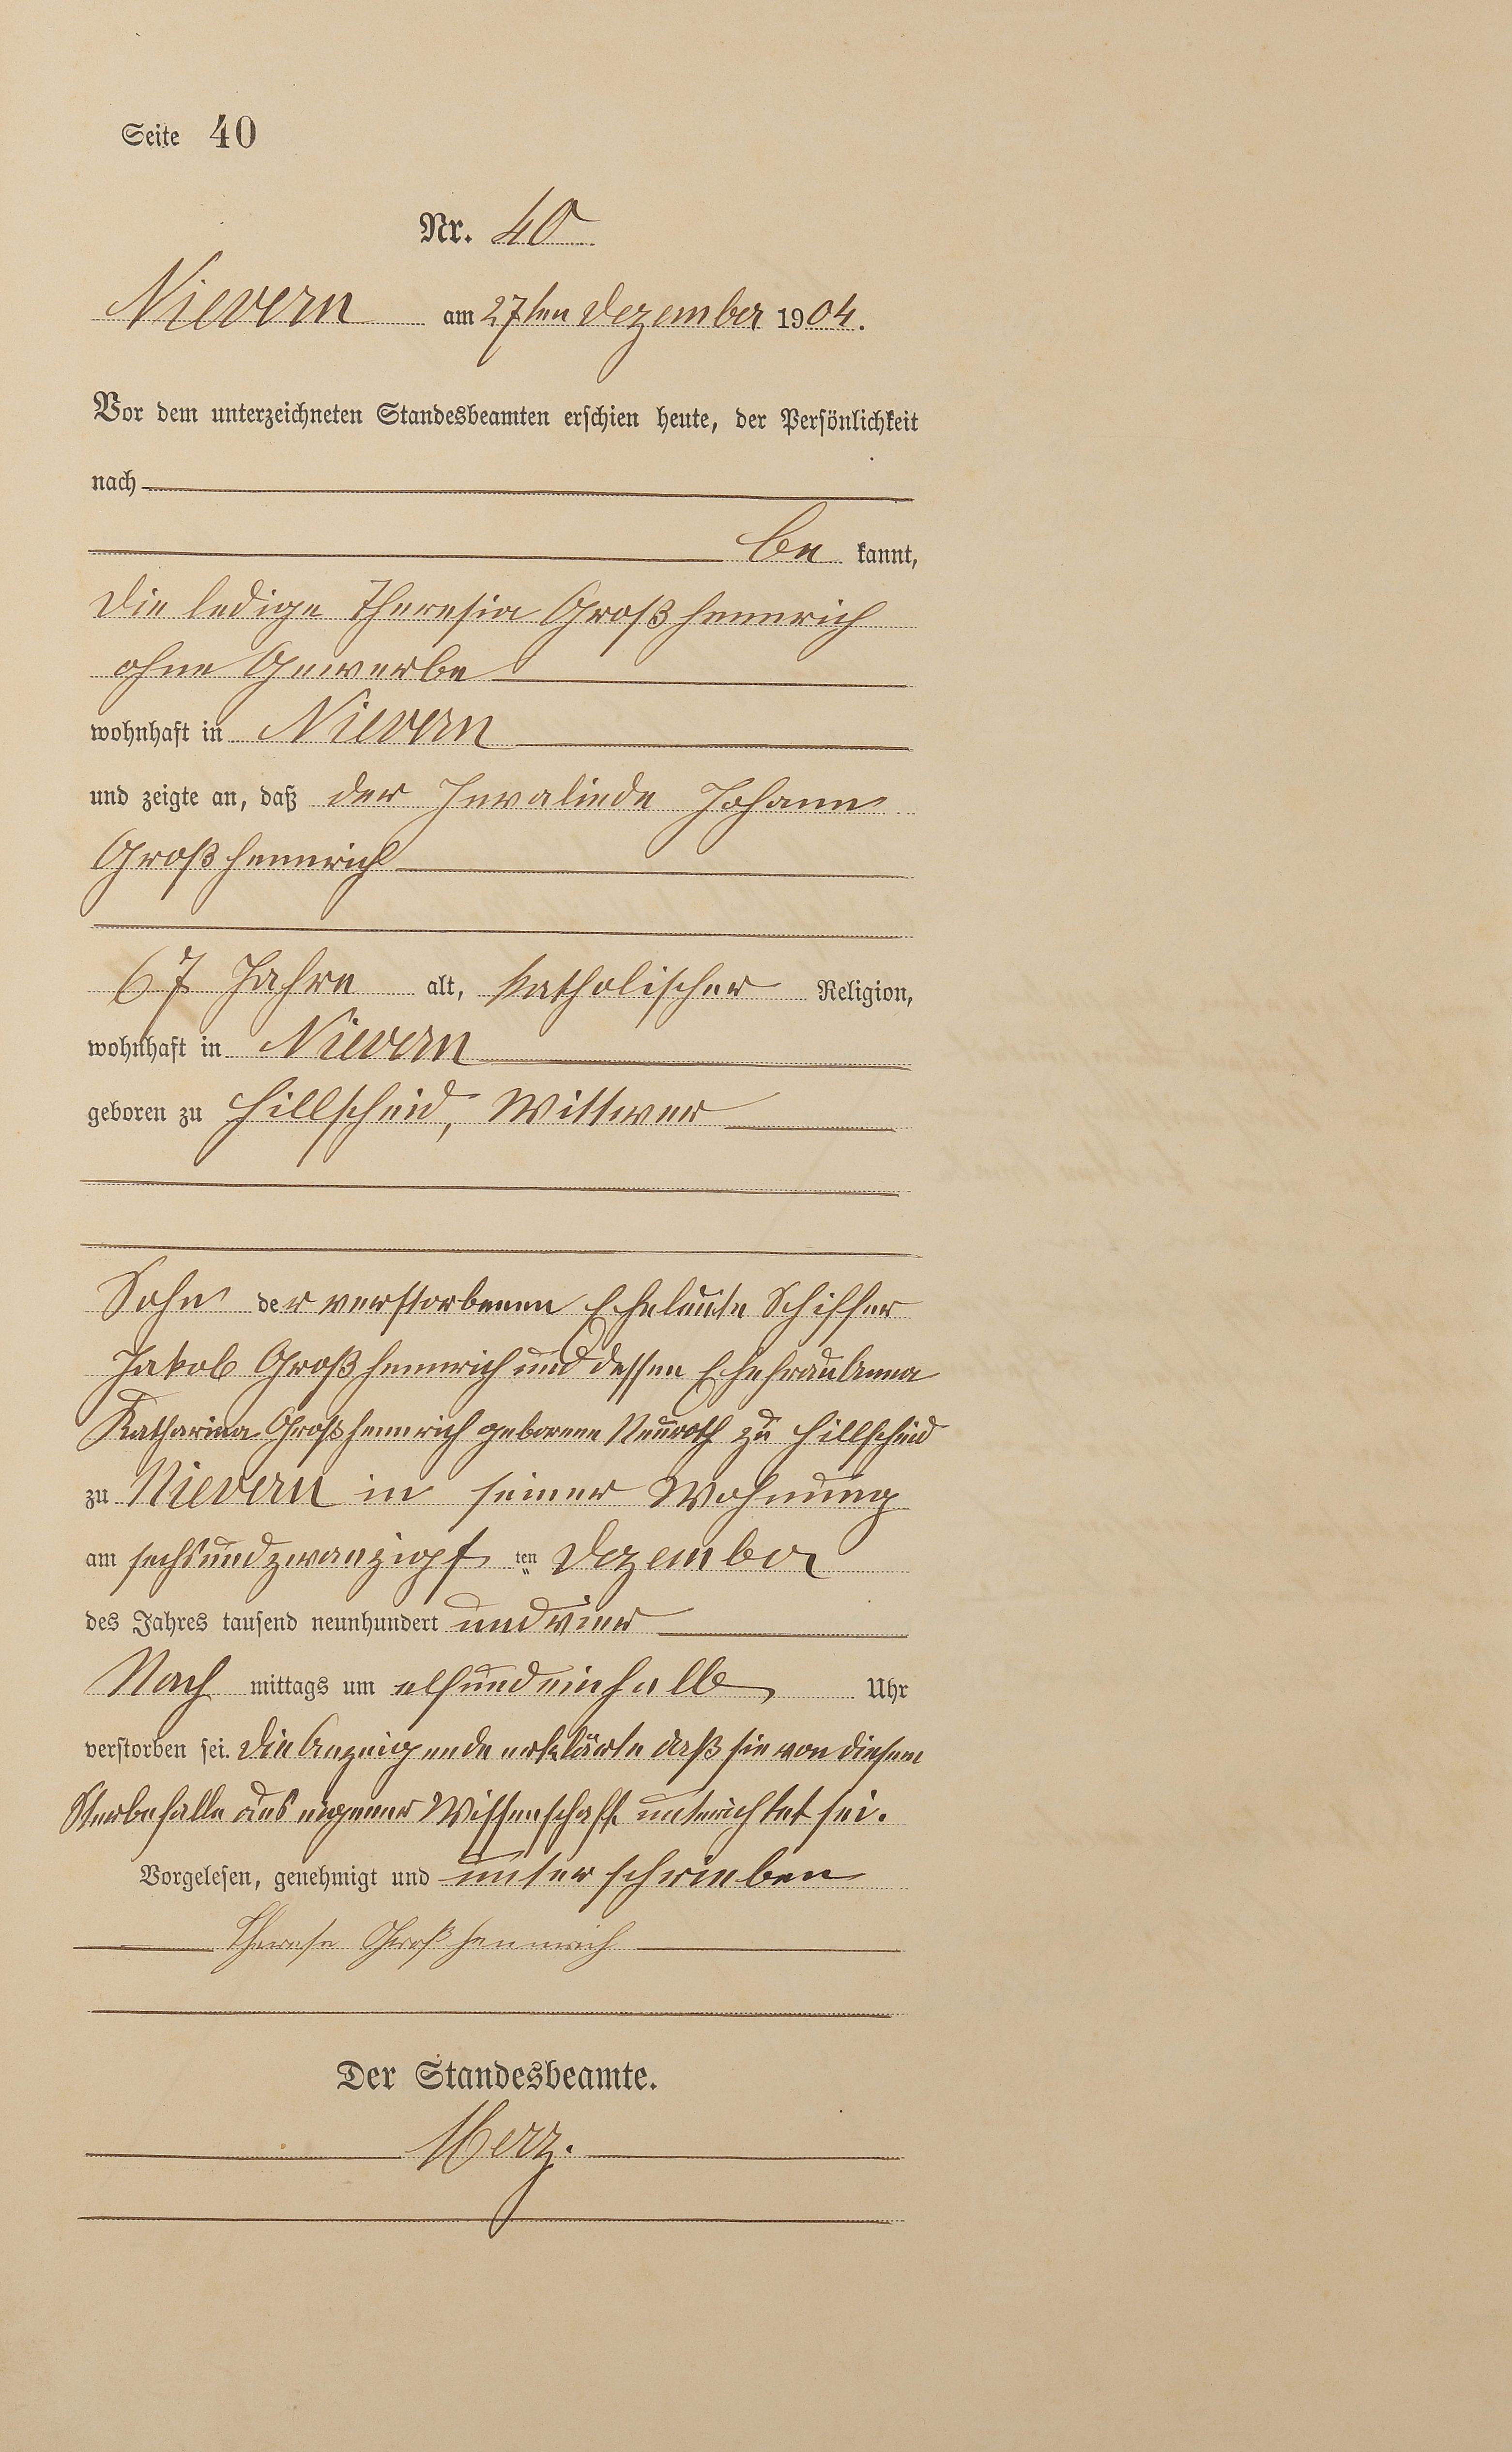 Seite 40
Nr. 40
Nievern am 27ten Dezember 1904.
Vor dem unterzeichneten Standesbeamten erschien heute, der Persönlichkeit
nach
be kannt,
die ledige Theresia Großhennrich
ohne Gewerbe
wohnhaft in Nievern
und zeigte an, daß der Invaliede Johann
Großhennrich
67 Jahre alt, katholischer Religion,
wohnhaft in Nievern
geboren zu Hillscheid, Wittwer
Sohn der verstorbenen Eheleute Schiffer
Jakob Großhennrich und dessen Ehefrau Anna
Katharina Großhennrich geborene Neuroth zu Hillscheid
zu Nievern in seiner Wohnung
am sechsundzwanzigs ten Dezember
des Jahres tausend neunhundert und vier
Nach mittags um elfundeinhalb Uhr
verstorben sei. Die Anzeigende erklärte daß sie von diesem
Sterbefalle aus eigener Wissenschaft unterichtet sei.
Vorgelesen, genehmigt und unterschrieben
Therese Großhennrich
Der Standesbeamte.
Merz.